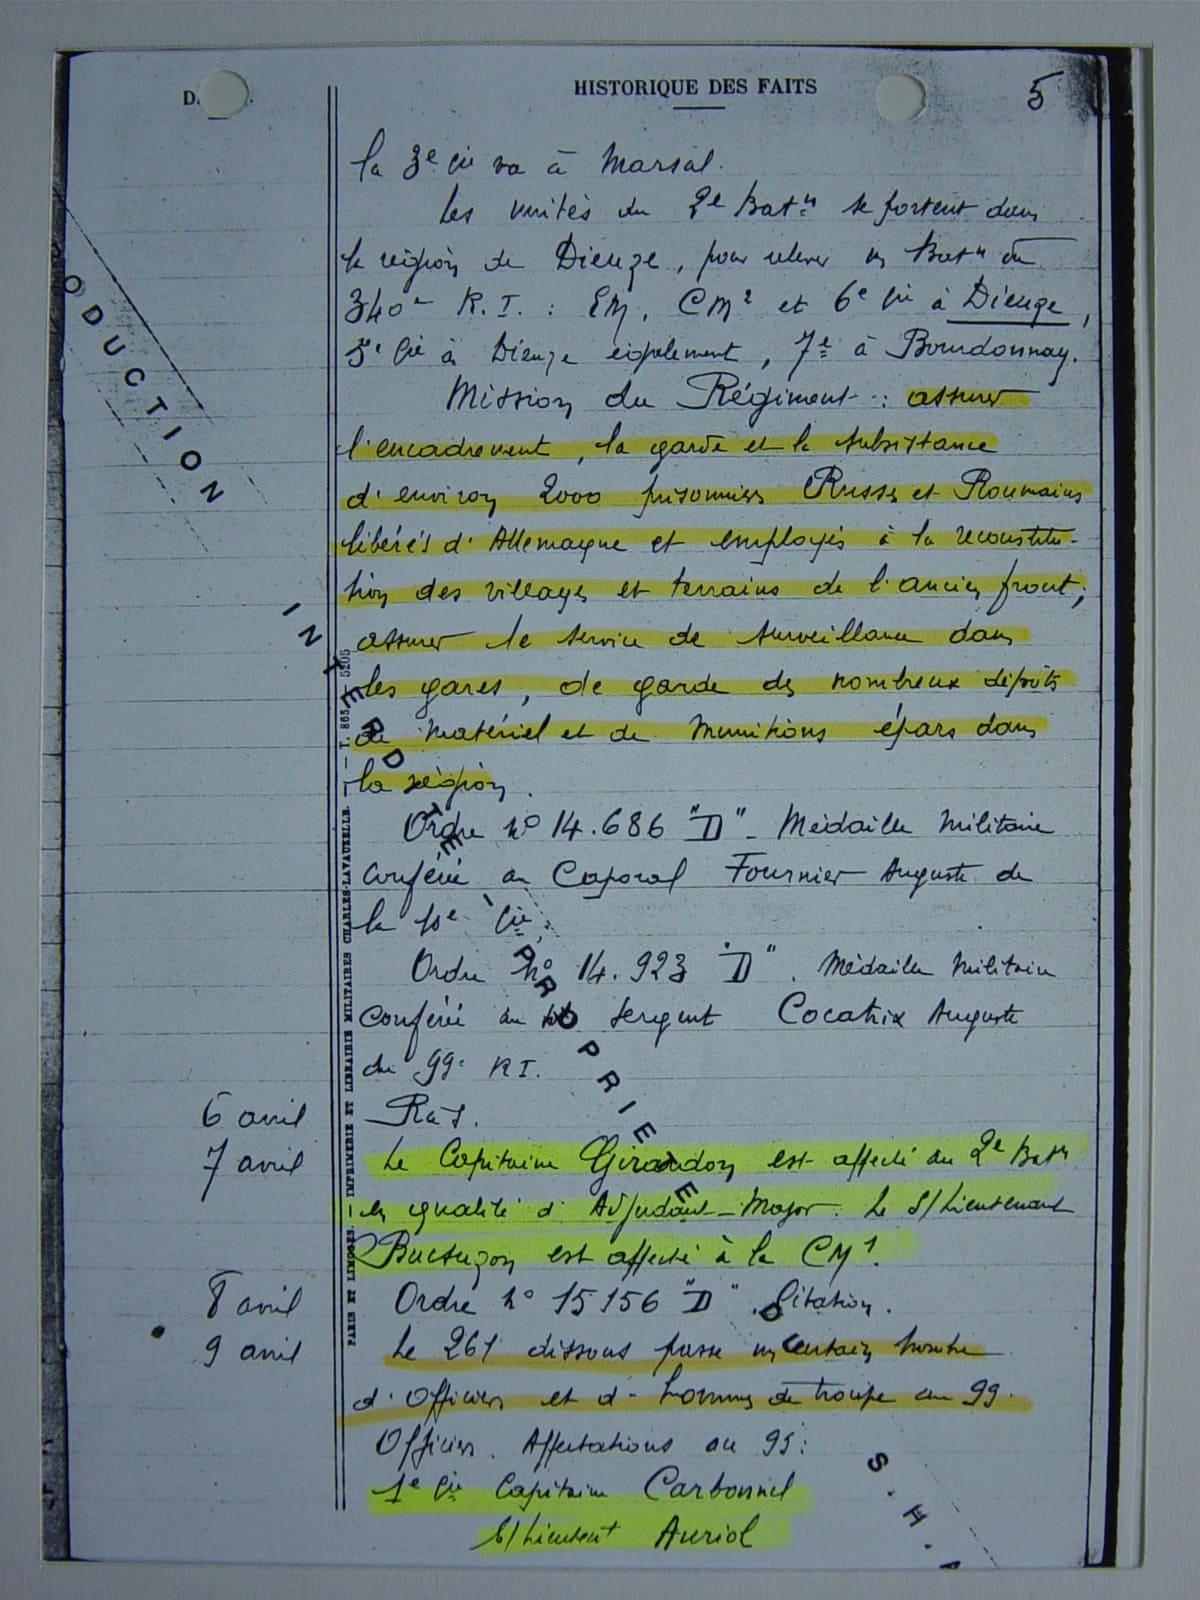 DATES.
HISTORIQUE DES FAITS
5
la 3e Cie va à Marsal.
Les unités du 2e Batn se portent dans
la région de Dieuze, pour relever un Batn du
340e R.I. : EM, CM2 et 6e Cie à Dieuze,
5e Cie à Dieuze également, 7e à Bourdonnay.
Mission du Régiment : assurer
l'encadrement, la garde et la subsistance
d'environ 2000 prisonniers Russes et Roumains
libérés d'Allemagne et employés à la reconstitu-
tion des villages et terrains de l'ancien front ;
assurer le service de surveillance dans
les gares, de garde des nombreux dépôts
de matériel et de munitions épars dans
la région.
Ordre no 14.686 "D" - Médaille Militaire
conférée au Caporal Fournier Auguste de
la 10e Cie.
Ordre no 14.923 "D". Médaille Militaire
conférée au Sergent Cocatrix Auguste
du 99e R.I.
6 avril R.a.S.
7 avril Le Capitaine Girandon est affecté au 2e Batn
en qualité d'Adjudant-Major. Le S/Lieutenant
est affecté à la CM1.
8 avril Ordre no 15156 "D". Citation.
9 avril Le 261 dissous passe un certain nombre
d'Officiers et d'hommes de troupe au 99.
Officiers. Affectations au 99 :
1e Cie Capitaine Carbonnel
S/Lieutent Auriol
PARIS ET LIMOGES. — IMPRIMERIE ET LIBRAIRIE MILITAIRES CHARLES-LAVAUZELLE. — T. 865 - 5205
ODUCTION INTERDITE - PROPRIETE DU S.H.A